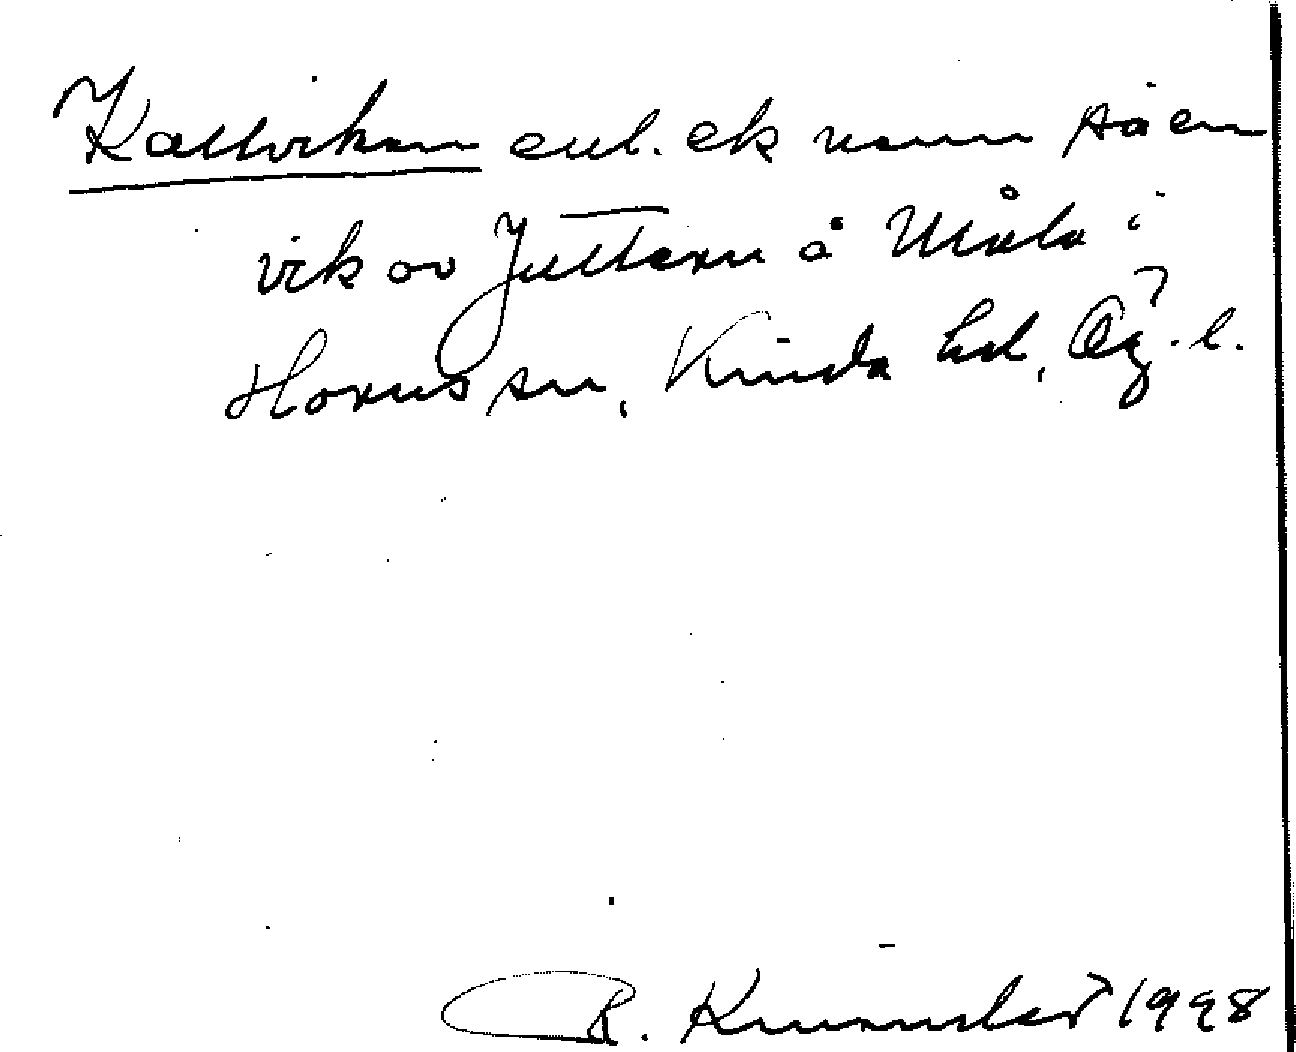 Kattviken enl. ek namn på en
vik av Juttern å Måla i
Horns sn, Kinda hd, Ög. l.
R. 1998